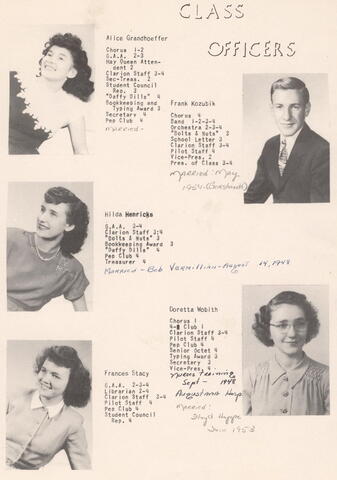 CLASS
OFFICERS
Alice Grandhoeffer
Chorus 1-2
G.A.A. 2-3
Hay Queen Atten-
dent 2
Clarion Staff 3-4
Sec-Treas. 2
Student Council
Rep. 3
"Daffy Dills" 4
Bookkeeping and
Typing Award 3
Secretary 4
Pep Club 4
MARRIED-
Frank Kozubik
Chorus 4
Band 1-2-3-4
Orchestra 2-3-4
"Bolts & Nuts" 2
School Letter 3
Clarion Staff 3-4
Pilot Staff 4
Vice-Pres. 2
Pres. of Class 3-4
MARRIED: May
1954
Hilda Henricks
G.A.A. 2-4
Clarion Staff 3-4
"Bolts & Nuts" 3
Bookkeeping Award 3
"Daffy Dills" 4
Pep Club 4
Treasurer 4
MARRIED - Bob Vermillian - August 14, 1948
Doretta Wobith
Chorus 1
4-H Club 1
Clarion Staff 3-4
Pilot Staff 4
Pep Club 4
Senior Octet 4
Typing Award 3
Secretary 3
Vice-Pres. 4
Nurses Training
Sept - 1948
Augustana Hosp
MARRIED:
June 1953
Frances Stacy
G.A.A. 2-3-4
Librarian 2-4
Clarion Staff 3-4
Pilot Staff 4
Pep Club 4
Student Council
Rep. 4